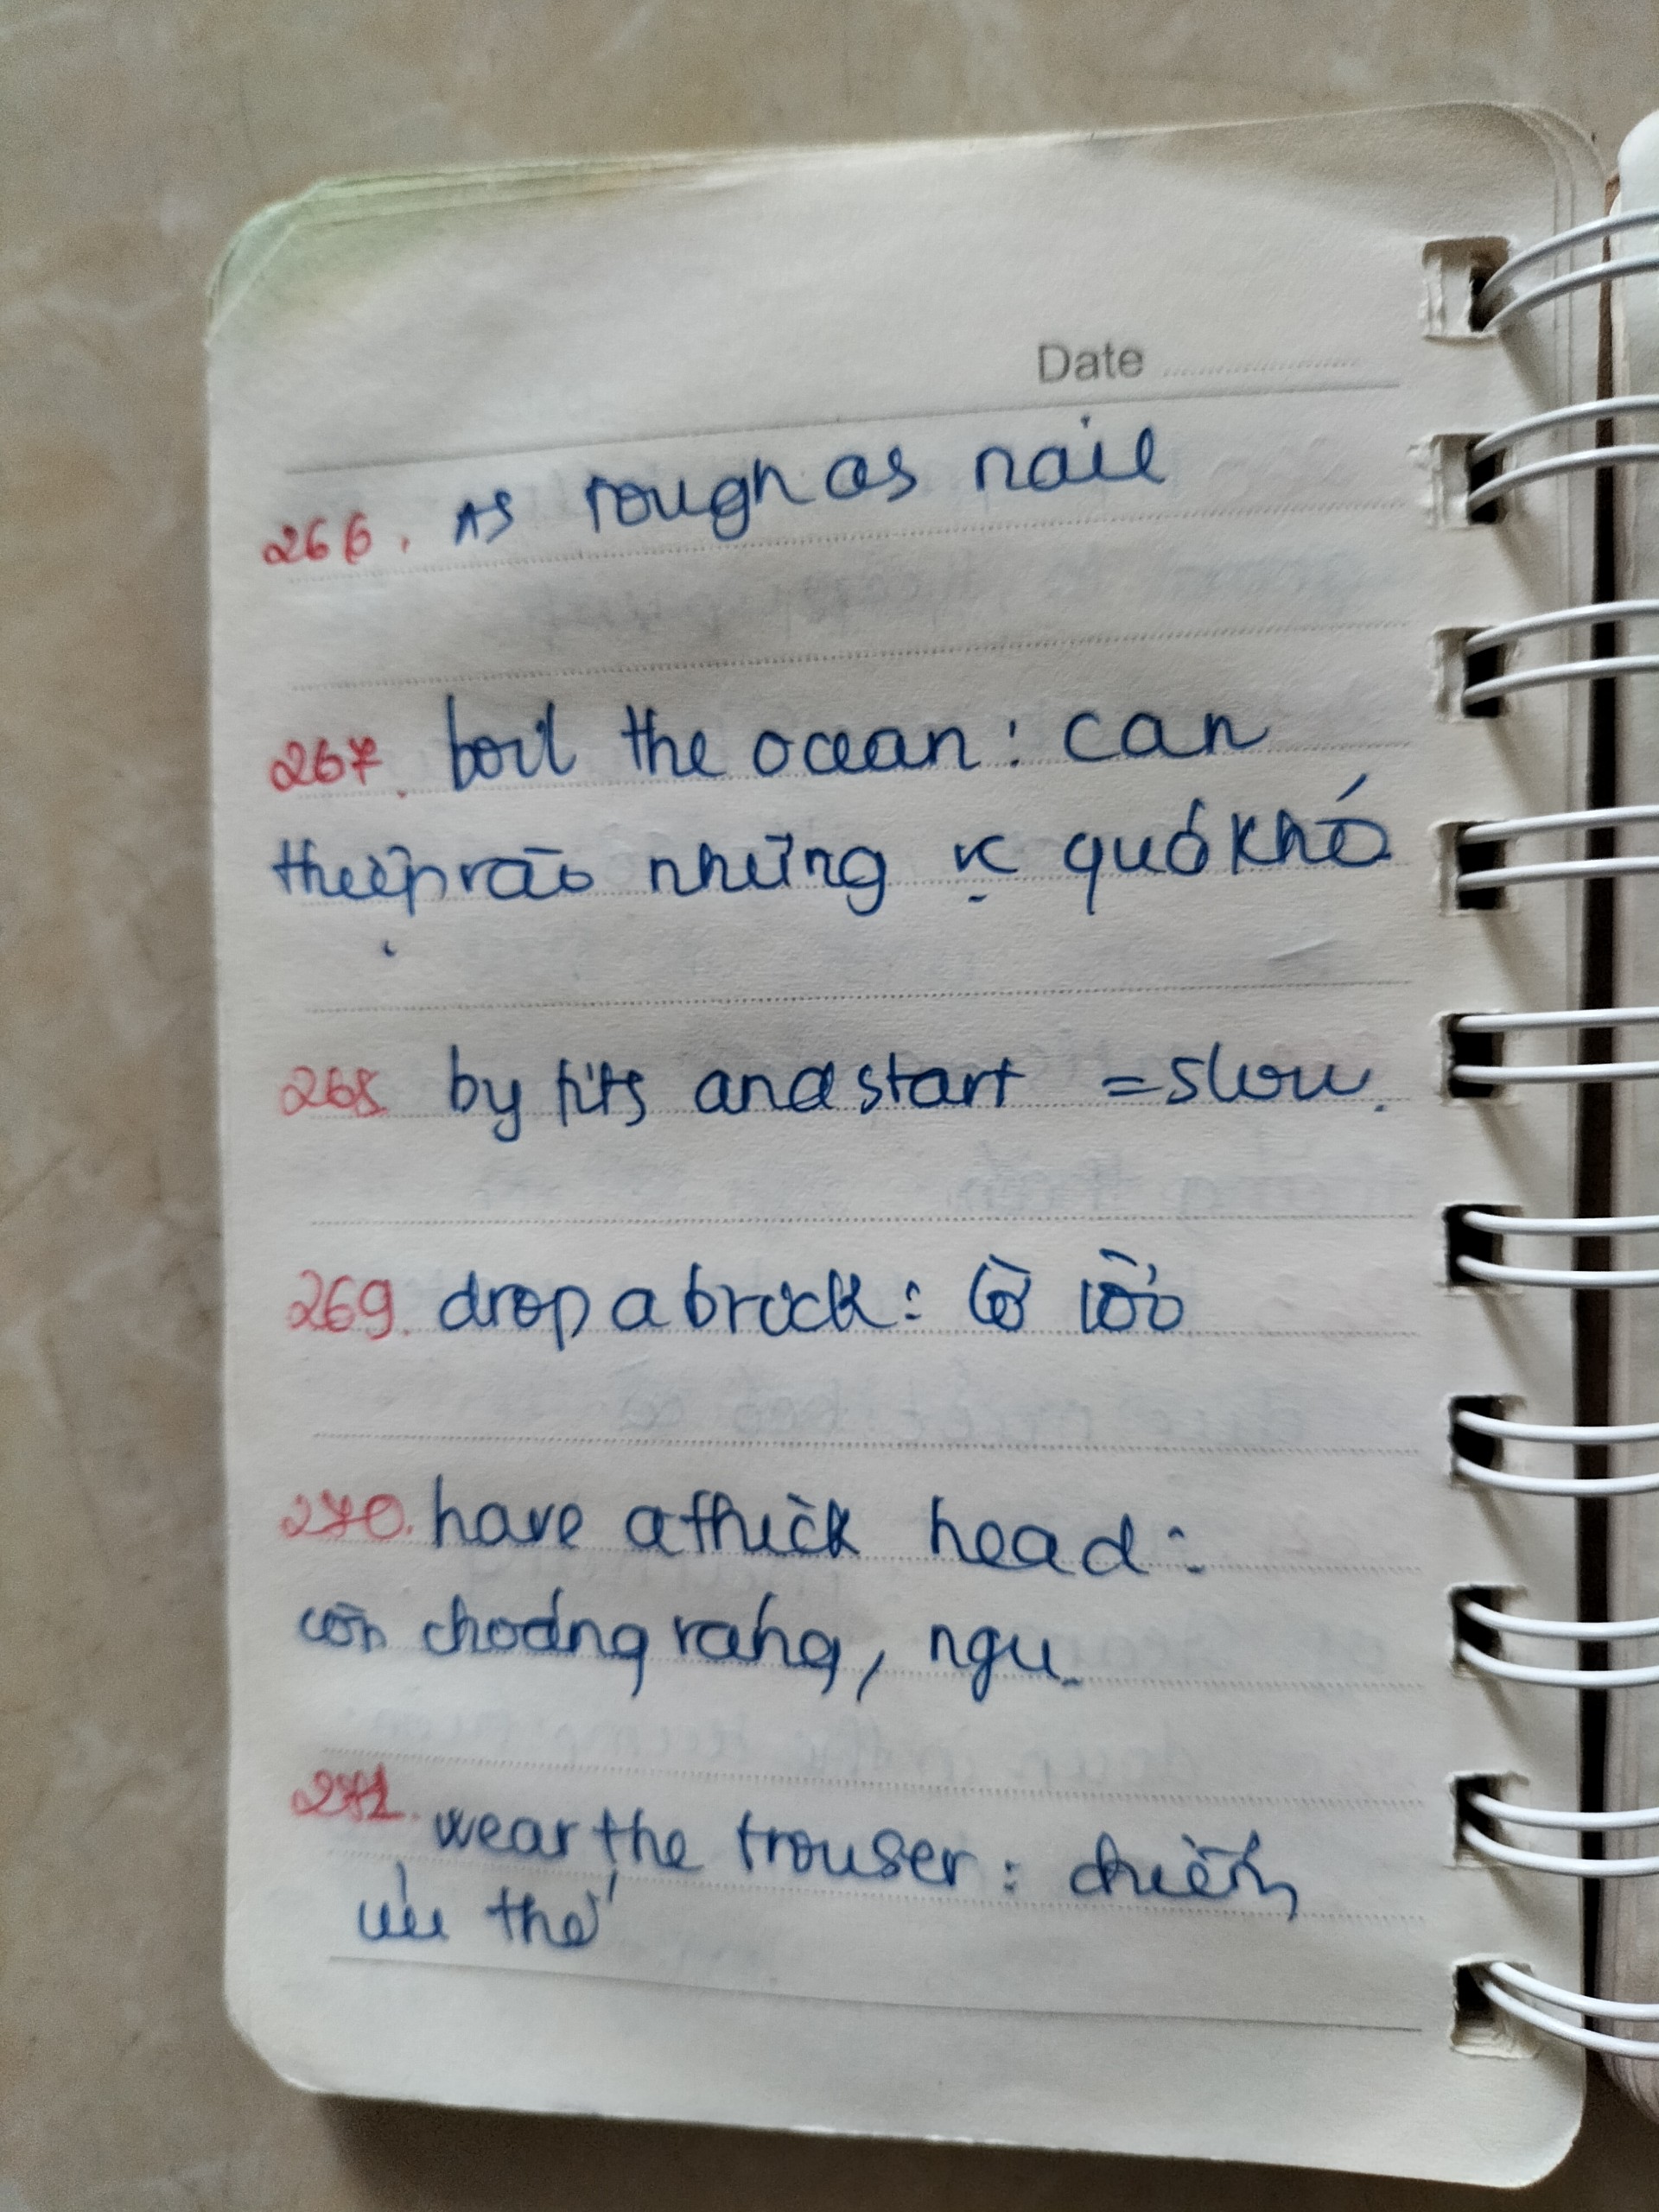 Date
266. As tough as nail
267. boil the ocean: can
thiệp vào những vc quá khó
268 by fits and start = slow.
269. drop a brick: lỡ lời
270. have a thick head:
choáng váng, ngu
271. wear the trouser: chiếm
ưu thế